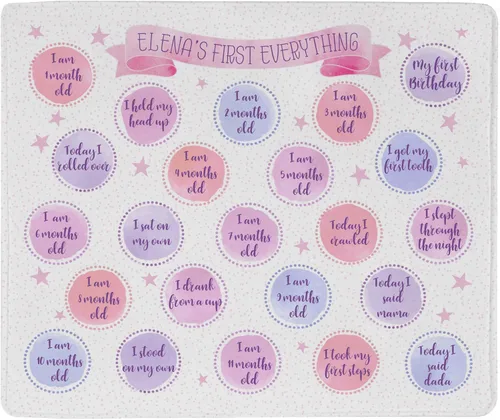 ELENA'S FIRST EVERYTHING
I am
1 month
old
My first
Birthday
I held my
head up
I am
2 months
old
I am
3 months
old
Today I
rolled over
I am
4 months
old
I am
5 months
old
I got my
first tooth
I am
6 months
old
I sat on
my own
I am
7 months
old
Today I
crawled
I slept
through
the night
I am
8 months
old
I drank
from a cup
I am
9 months
old
Today I
said
mama
I am
10 months
old
I stood
on my own
I am
11 months
old
I took my
first steps
Today I
said
dada